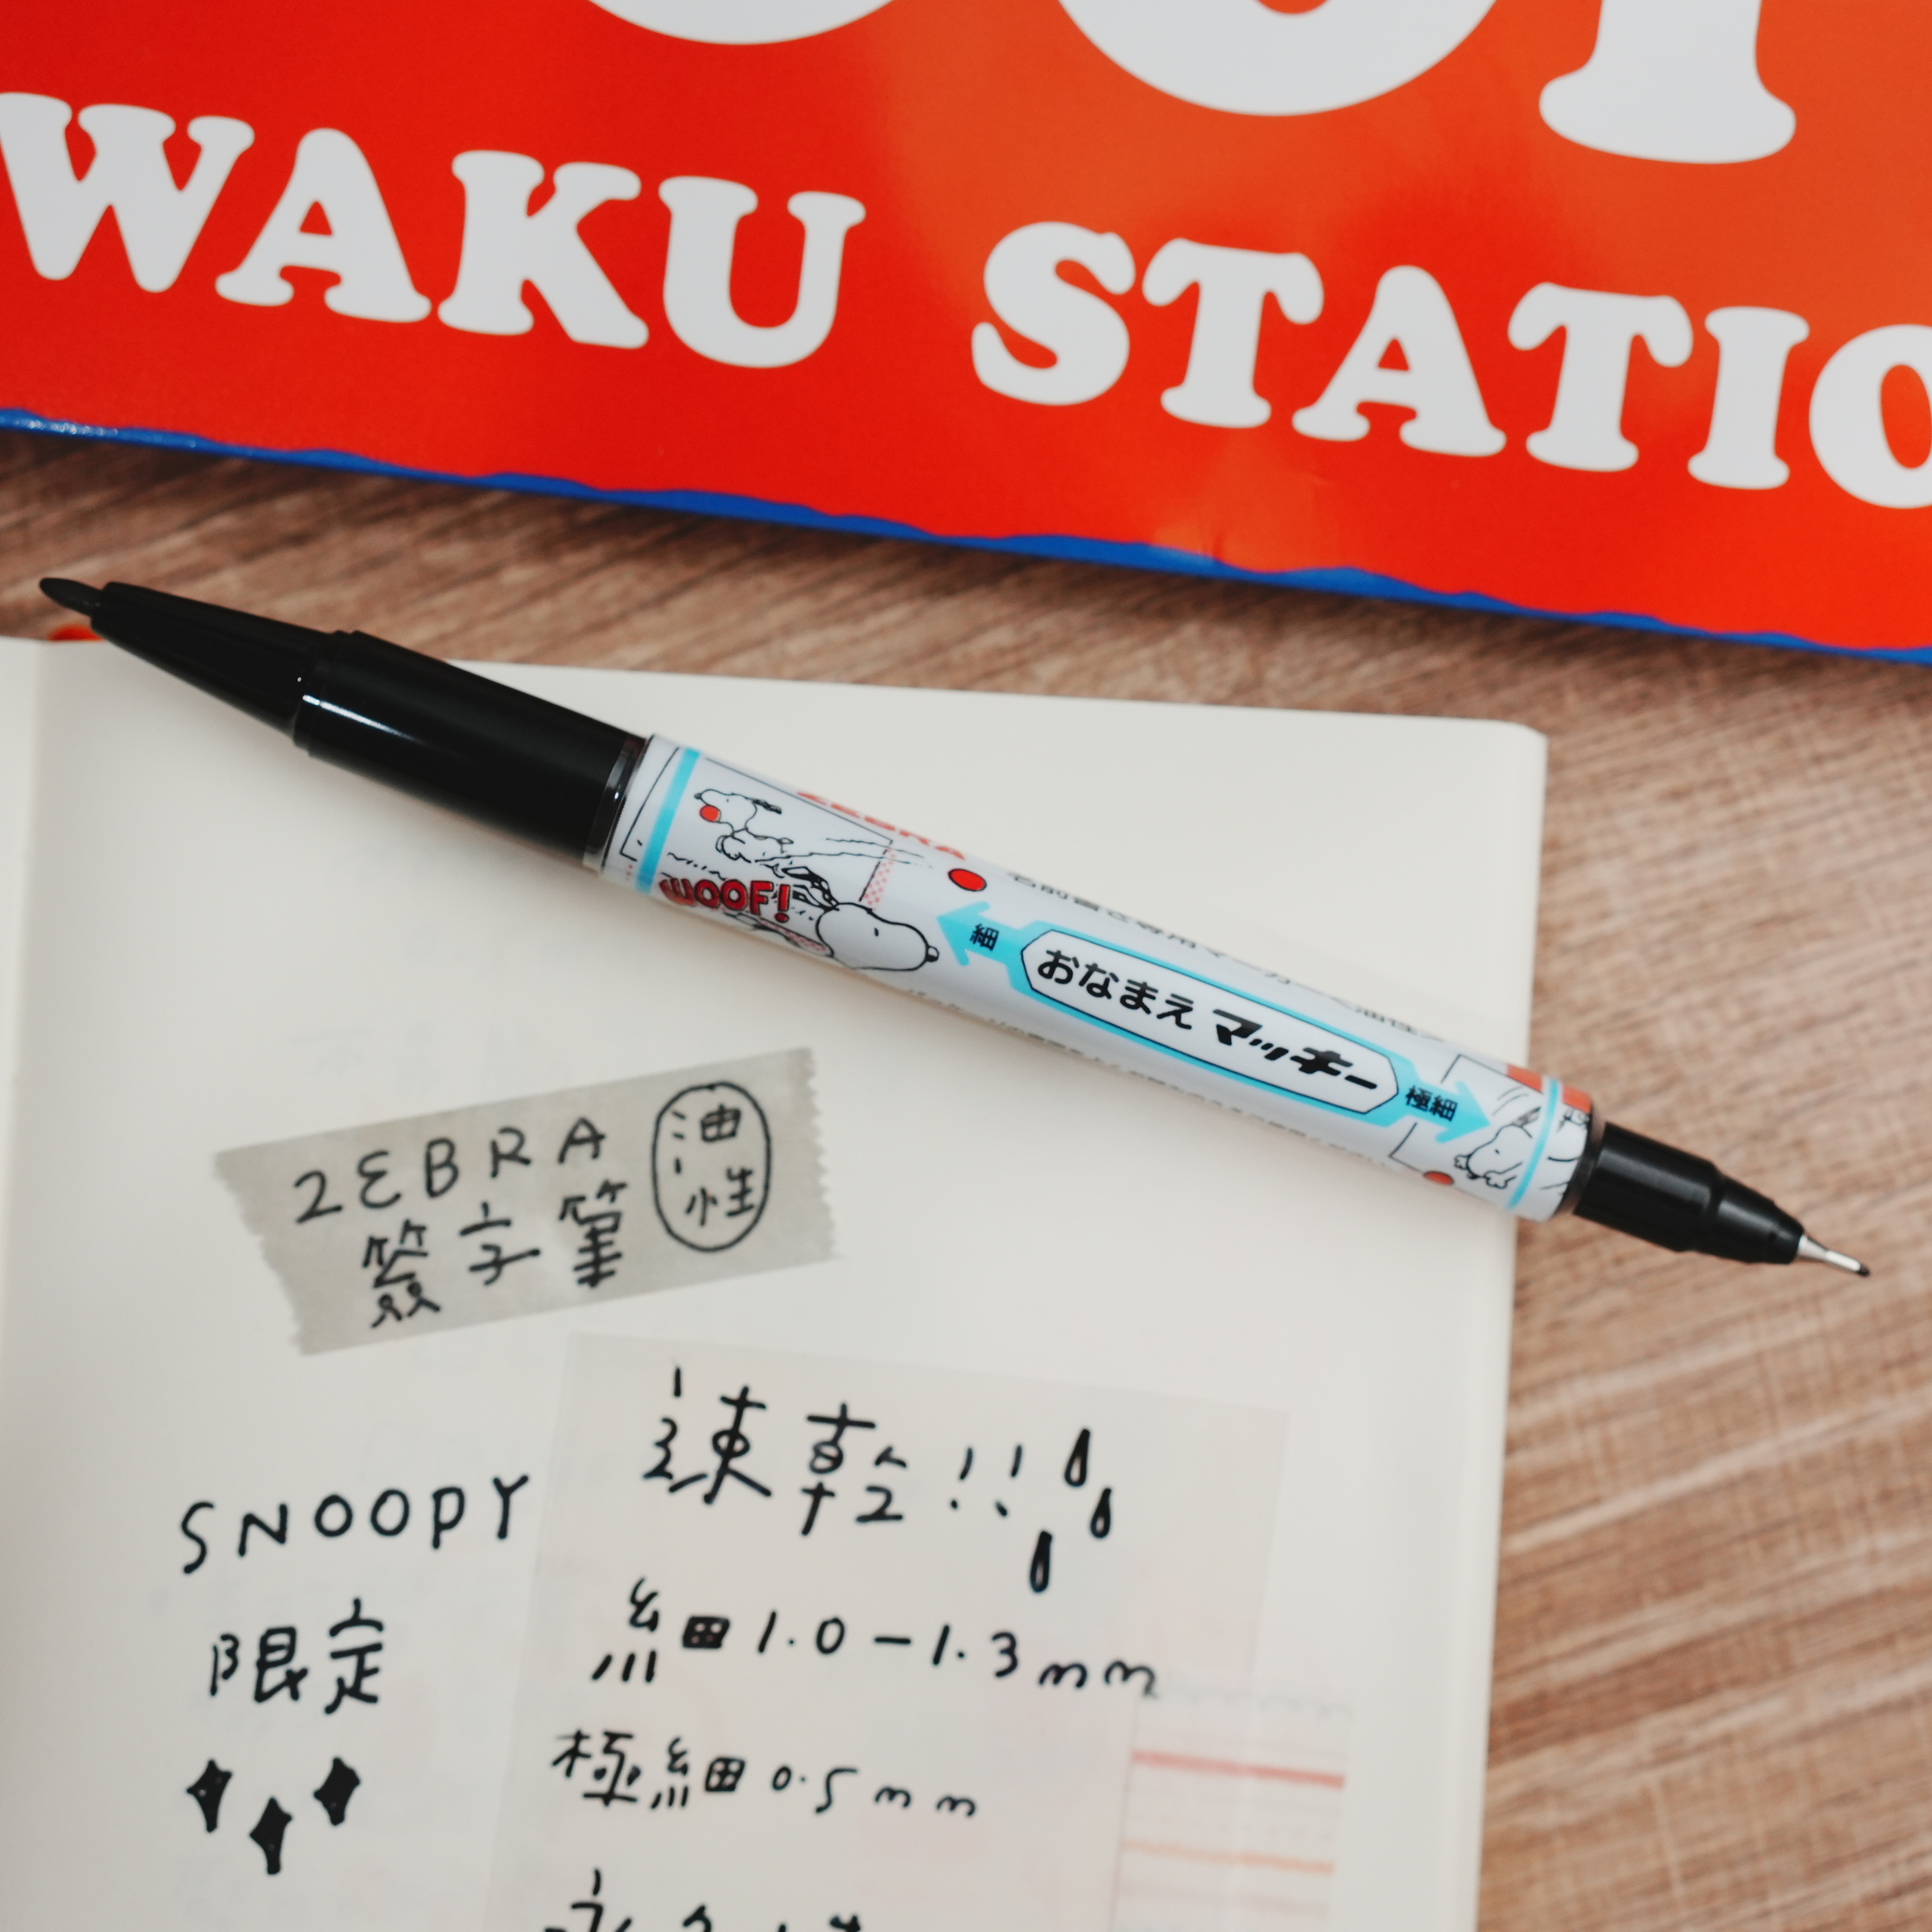 WAKU STATIO
ZEBRA
WOOF!
細
おなまえマッキー
極細
ZEBRA
簽字筆
油性
速乾!!
SNOOPY
限定
細 1.0-1.3mm
極細 0.5mm